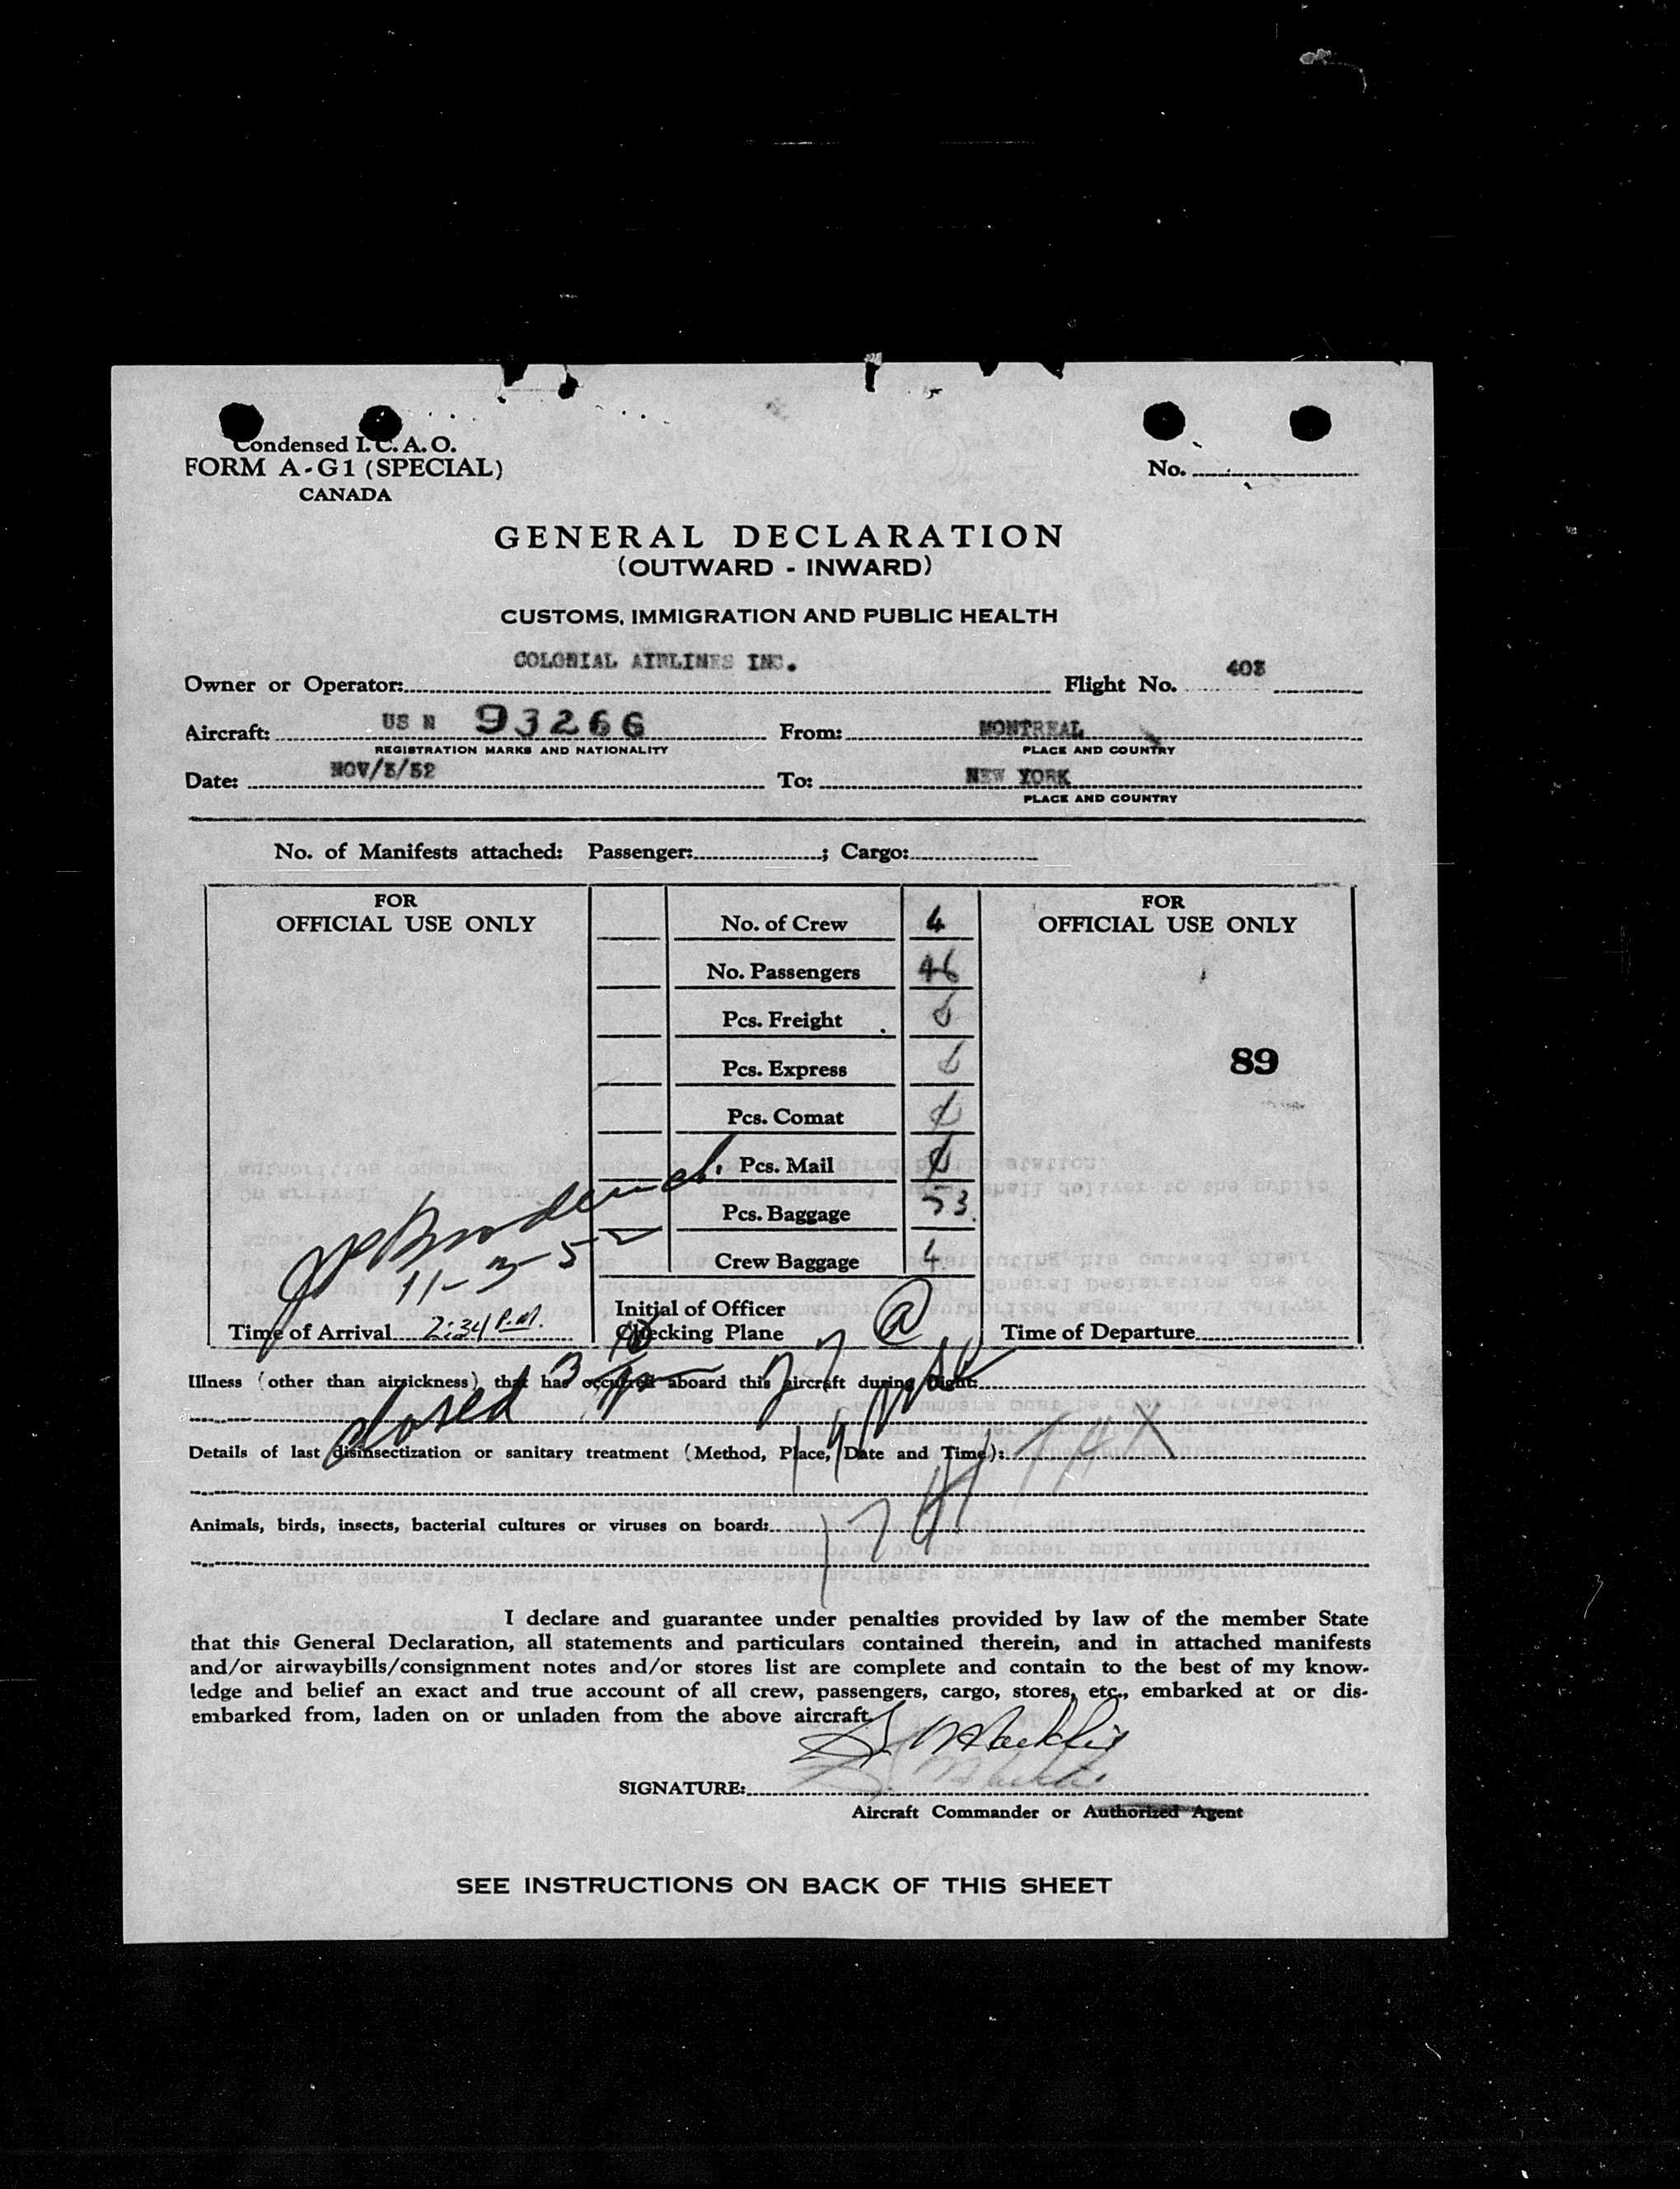 Condensed I. C. A. O.
FORM A-G1 (SPECIAL)
CANADA
No.
GENERAL DECLARATION
(OUTWARD - INWARD)
CUSTOMS, IMMIGRATION AND PUBLIC HEALTH
COLONIAL AIRLINES INC.
Owner or Operator: Flight No. 403
Aircraft: US N 93266 From: MONTREAL
REGISTRATION MARKS AND NATIONALITY PLACE AND COUNTRY
Date: NOV/3/52 To: NEW YORK
PLACE AND COUNTRY
No. of Manifests attached: Passenger: ; Cargo:
FOR
OFFICIAL USE ONLY
No. of Crew 4
No. Passengers 46
Pcs. Freight 0
Pcs. Express 0
Pcs. Comat 0
Pcs. Mail 0
Pcs. Baggage 53
Crew Baggage 4
FOR
OFFICIAL USE ONLY
89
11-3-52
Time of Arrival 2:34 P.M.
Initial of Officer
Checking Plane
Time of Departure
Illness (other than airsickness) that has occurred aboard this aircraft during flight:
closed
Details of last disinsectization or sanitary treatment (Method, Place, Date and Time):
Animals, birds, insects, bacterial cultures or viruses on board:
I declare and guarantee under penalties provided by law of the member State
that this General Declaration, all statements and particulars contained therein, and in attached manifests
and/or airwaybills/consignment notes and/or stores list are complete and contain to the best of my know-
ledge and belief an exact and true account of all crew, passengers, cargo, stores, etc., embarked at or dis-
embarked from, laden on or unladen from the above aircraft.
SIGNATURE:
Aircraft Commander or Authorized Agent
SEE INSTRUCTIONS ON BACK OF THIS SHEET